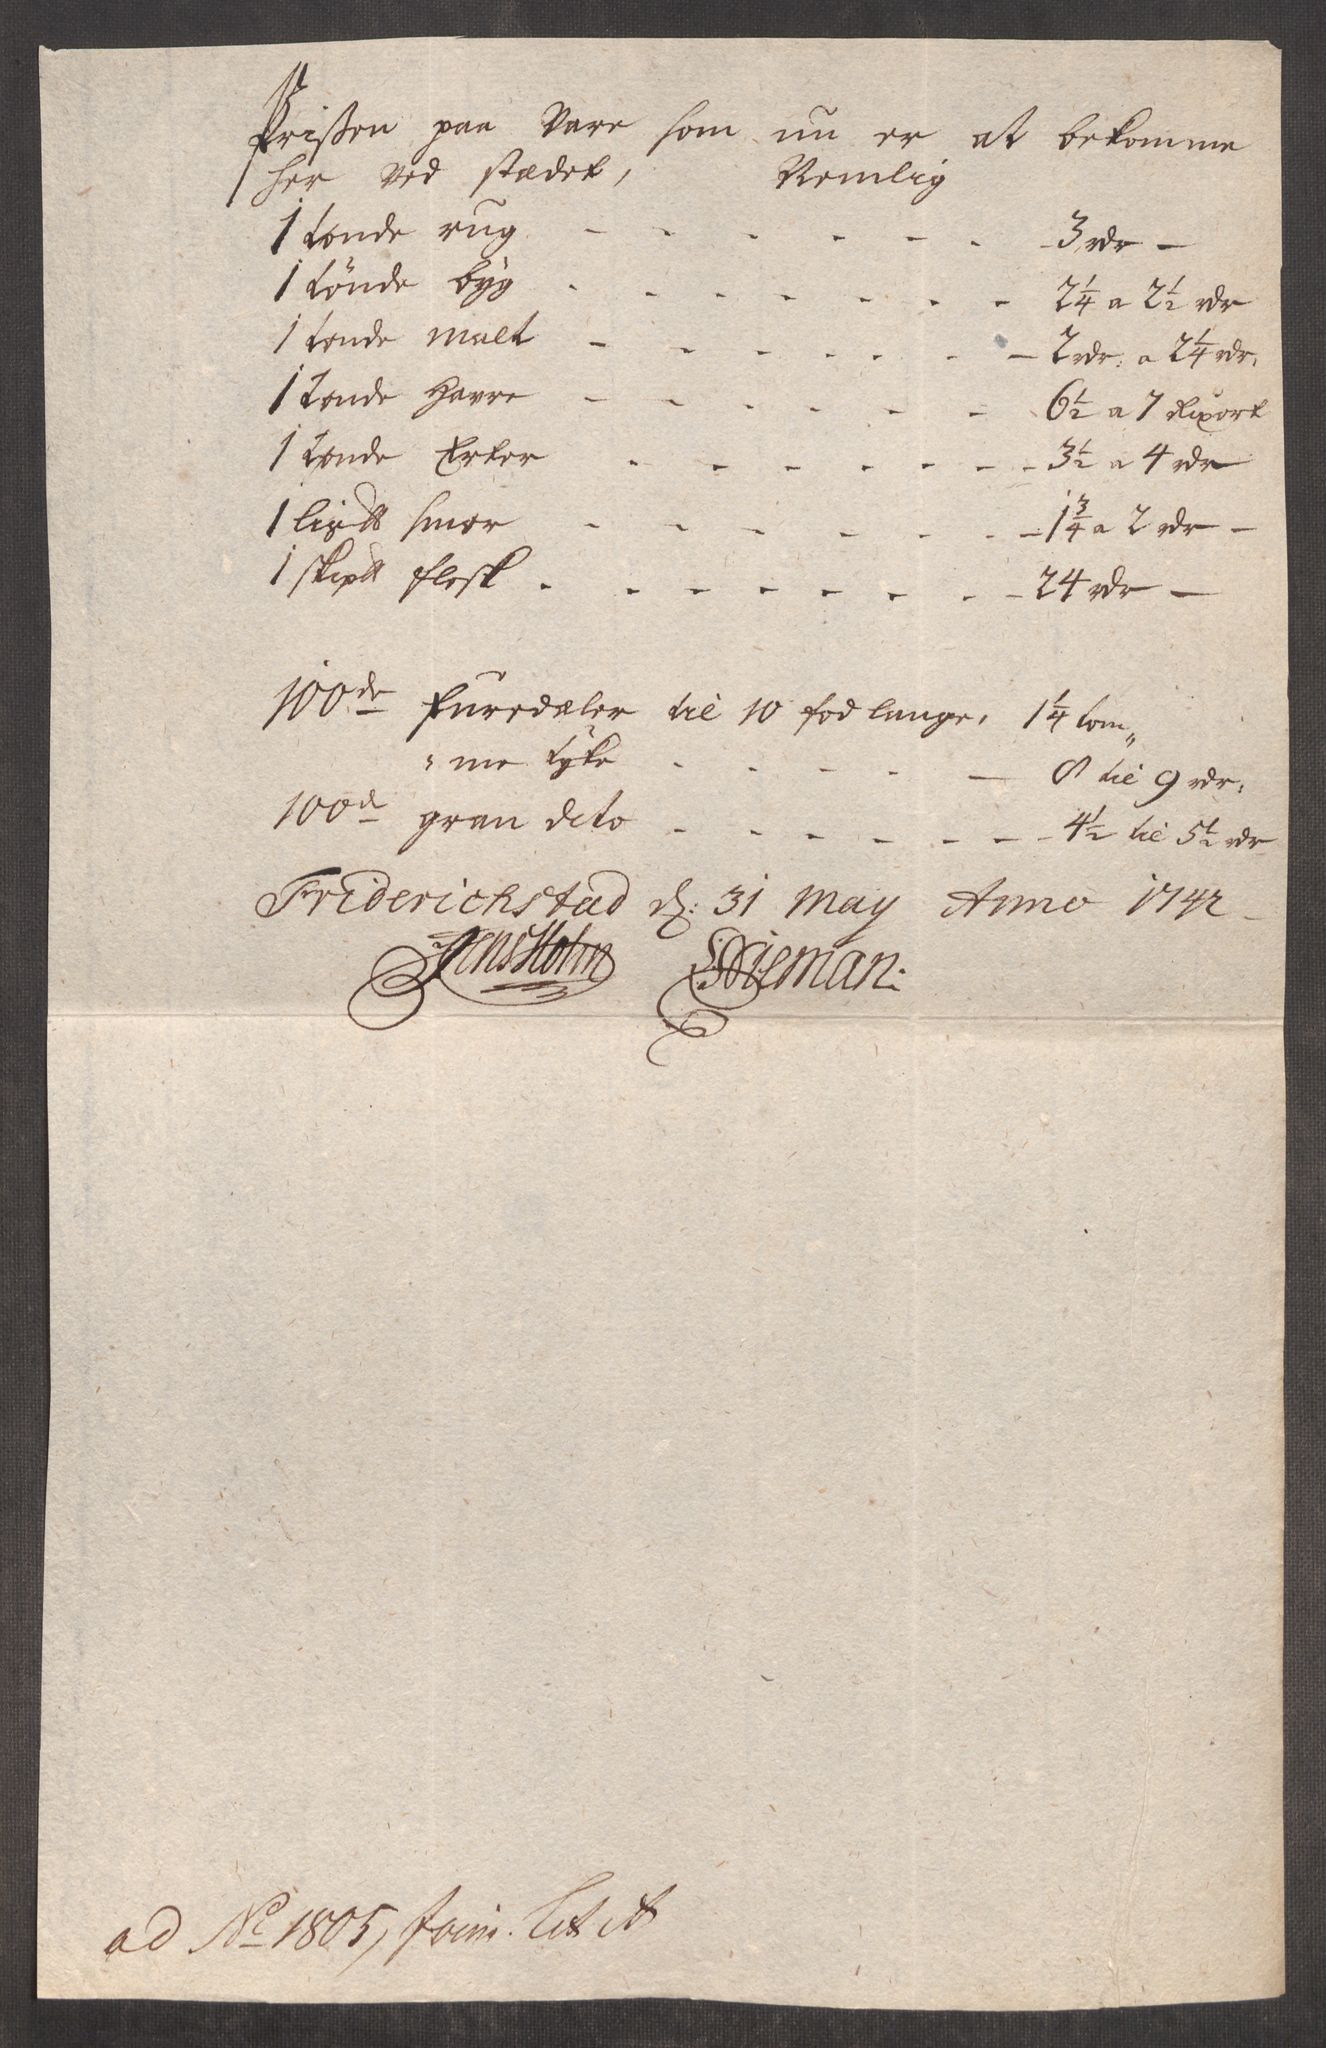 Prissen paa Vare som nu er at bekomme
her ved stædet, Nemlig
1 tønde rug - - - - - - 3 rdr -
1 tönde byg - - - - - - - 2 1/4 a 2 1/2 rdr
1 tønde malt - - - - - - - 2 rdr: a 2 1/4 rdr:
1 Tønde Havre - - - - - - 6 1/2 a 7 Rixort
1 Tønde Erter - - - - - - - 3 1/2 a 4 rdr
1 lispd smør - - - - - - - 1 3/4 a 2 rdr -
1 skipd flesk - - - - - - - - 24 rdr -
100de furredæler til 10 fod lange, 1 1/4 tom„
„me tyke - - - - - 8 til 9 rdr:
100de gran dito - - - - - - - 4 1/2 til 5 1/2 rdr
Friderichstad d: 31 May Anno 1742
Jens Holm S: Nieman:
ad No 1805,